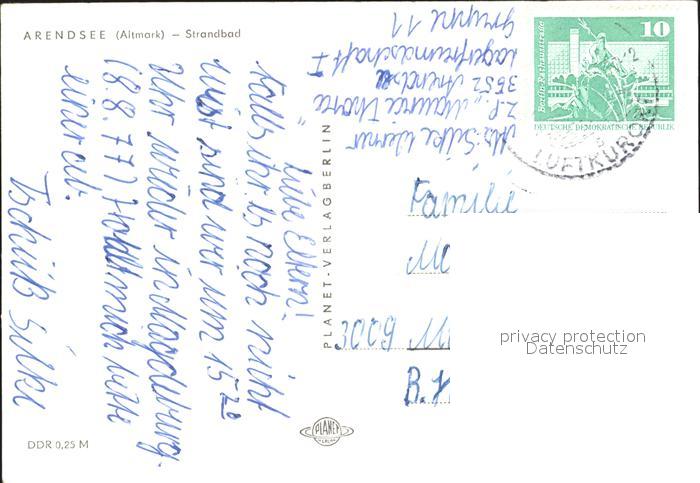 ARENDSEE (Altmark) – Strandbad
Liebe Eltern!
Falls ihr es noch nicht
wißt sind wir um 15 20
Uhr wieder in Magdeburg.
(8.8.77) Holt mich bitte
ab.
Tschüß Silke
DDR 0,25 M
PLANET-VERLAG BERLIN
PLANET
VERLAG
Abs. Silke Werner
ZPL "Maurice Thorez"
3552 Arendsee
Lagerfreundschaft I
Gruppe 11
Berlin-Rathausstraße
10
DEUTSCHE DEMOKRATISCHE REPUBLIK
LUFTKURORT
Familie
M
3009 M
privacy protection
Datenschutz